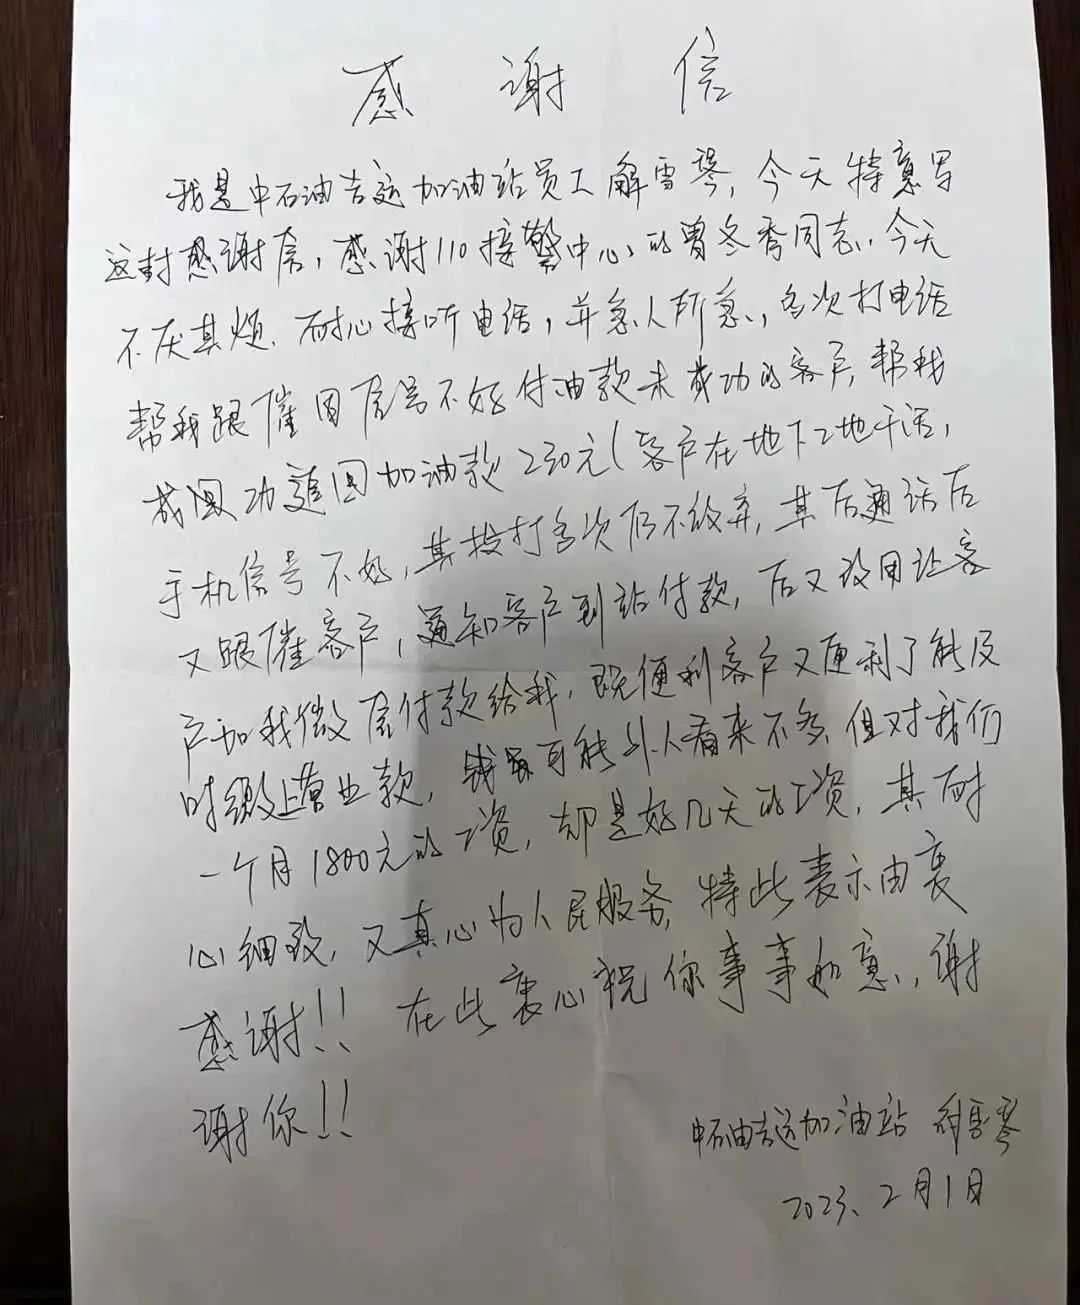 感谢信
我是中石油吉运加油站员工解雪琴,今天特意写
这封感谢信,感谢110接警中心的曾冬秀同志,今天
不厌其烦、耐心接听电话,并急人所急,多次打电话
帮我跟催因信号不好付油款未成功的客户,帮我
成功追回加油款230元(客户在地下工地干活,
手机信号不好,其拨打多次仍不放弃,其后通话后
又跟催客户,通知客户到站付款,后又设法让客
户加我微信付款给我,既便利客户又便利了能及
时缴上营业款,钱虽可能外人看来不多,但对我们
一个月1800元的工资,却是好几天的工资,其耐
心细致,又真心为人民服务,特此表示由衷
感谢!!在此衷心祝你事事如意,谢
谢你!!
中石油吉运加油站 解雪琴
2023、2月1日